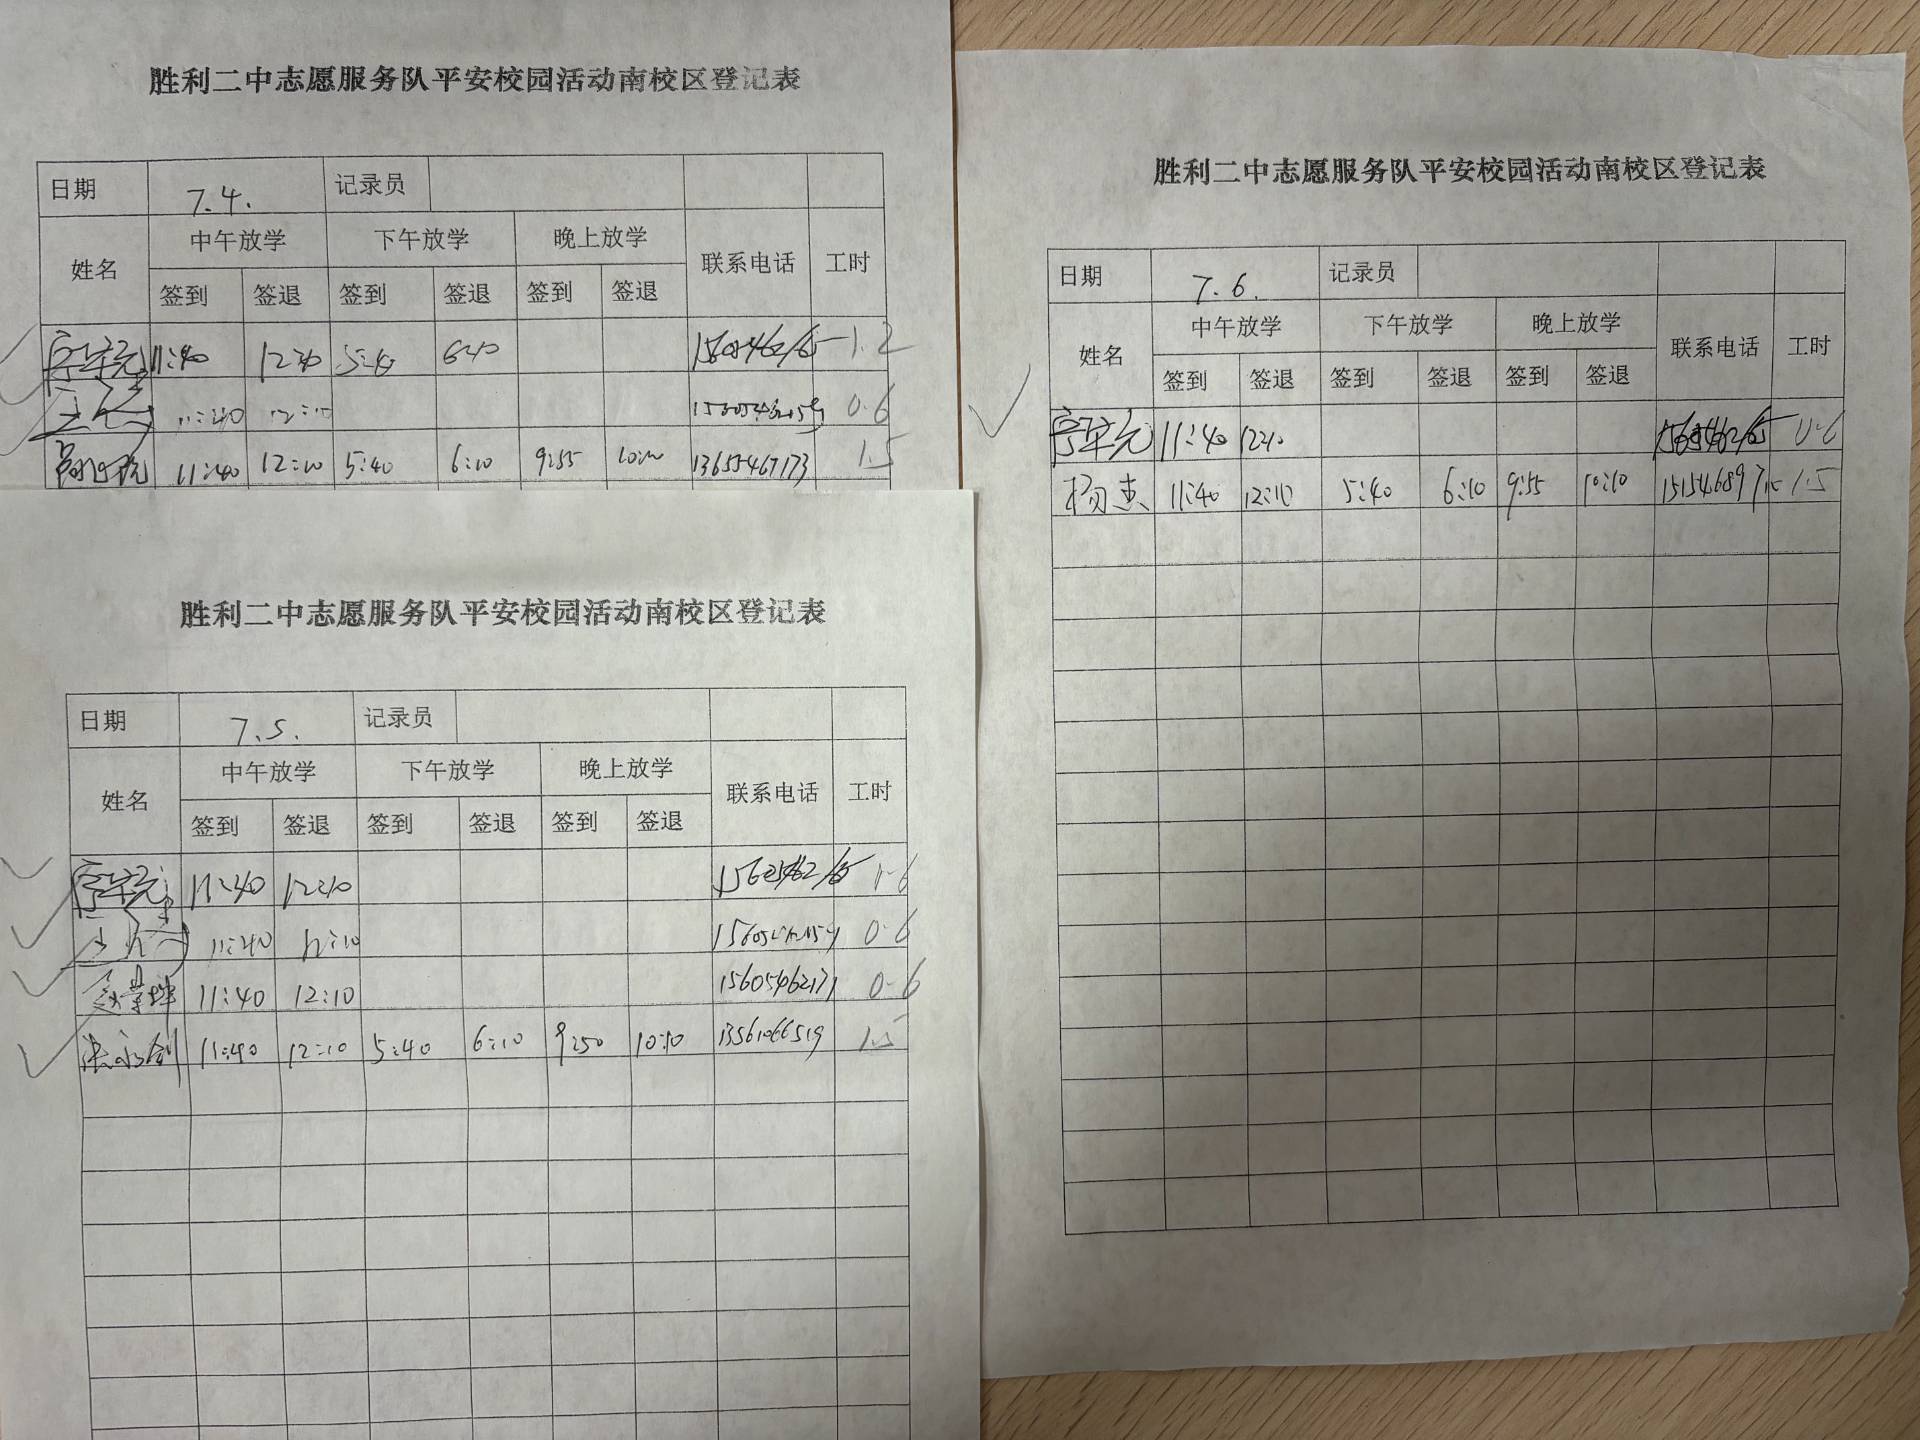 胜利二中志愿服务队平安校园活动南校区登记表
日期 7.4. 记录员
姓名 中午放学 下午放学 晚上放学 联系电话 工时
签到 签退 签到 签退 签到 签退
11:40 12:10 5:40 6:10 1.2
11:40 12:10 0.6
11:40 12:10 5:40 6:10 9:55 10:10 13655467173 1.5
胜利二中志愿服务队平安校园活动南校区登记表
日期 7.5. 记录员
姓名 中午放学 下午放学 晚上放学 联系电话 工时
签到 签退 签到 签退 签到 签退
11:40 12:10 0.6
11:40 12:10 0.6
11:40 12:10 15605462171 0.6
11:40 12:10 5:40 6:10 9:50 10:10 13561066519 1.5
胜利二中志愿服务队平安校园活动南校区登记表
日期 7.6. 记录员
姓名 中午放学 下午放学 晚上放学 联系电话 工时
签到 签退 签到 签退 签到 签退
11:40 12:10 0.6
杨杰 11:40 12:10 5:40 6:10 9:55 10:10 1.5